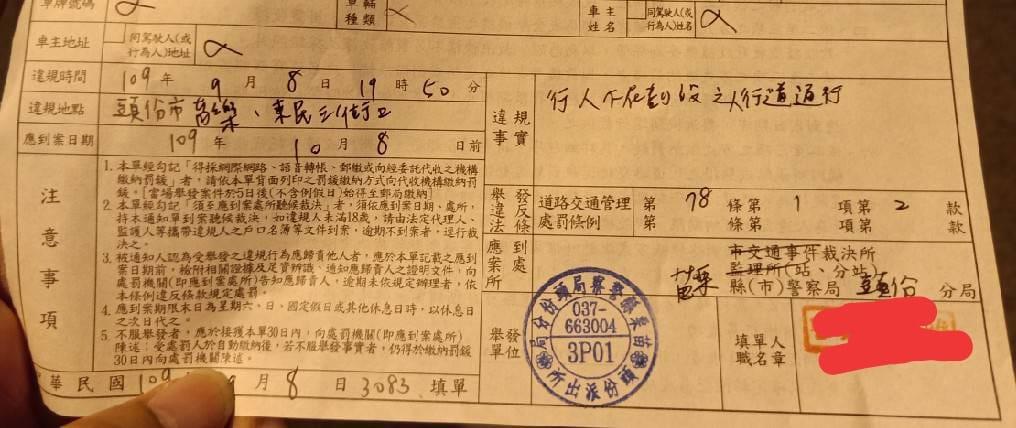 車牌號碼 車輛種類 車主姓名 同駕駛人(或行為人)姓名
車主地址 同駕駛人(或行為人)地址
違規時間 109年9月8日19時50分
違規地點 頭份市 、東民三街口
應到案日期 109年10月8日前
違規事實 行人不在劃設之人行道通行
注意事項
1.本單經勾記「得採網際網路、語音轉帳、郵繳或向經委託代收之機構
繳納罰鍰」者,請依本單背面列印之罰鍰繳納方式向代收機構繳納罰
鍰。「當場舉發案件於5日後(不含例假日)始得至郵局繳納」
2.本單經勾記「須至應到案處所聽候裁決」者,須依應到案日期、處所,
持本通知單到案聽候裁決,如違規人未滿18歲,請由法定代理人、
監護人等攜帶違規人之戶口名簿等文件到案,逾期不到案者,逕行裁
決之。
3.被通知人認為受舉發之違規行為應歸責他人者,應於本單記載之應到
案日期前,檢附相關證據及足資辨識、通知應歸責人之證明文件,向
處罰機關(即應到案處所)告知應歸責人,逾期未依規定辦理者,依
本條例違反條款規定處罰。
4.應到案期限末日為星期六、日、國定假日或其他休息日時,以休息日
之次日代之。
5.不服舉發者,應於接獲本單30日內,向處罰機關(即應到案處所)
陳述;受處罰人於自動繳納後,若不服舉發事實者,仍得於繳納罰鍰
30日內向處罰機關陳述。
舉發違反法條 道路交通管理處罰條例 第78條第1項第2款
第 條第 項第 款
應到案處所 市交通事件裁決所
監理所(站、分站)
苗栗縣(市)警察局頭份分局
舉發單位
苗栗縣警察局頭份分局
037-
663004
3P01
頭份派出所
填單人職名章
華民國109年9月8日3083填單